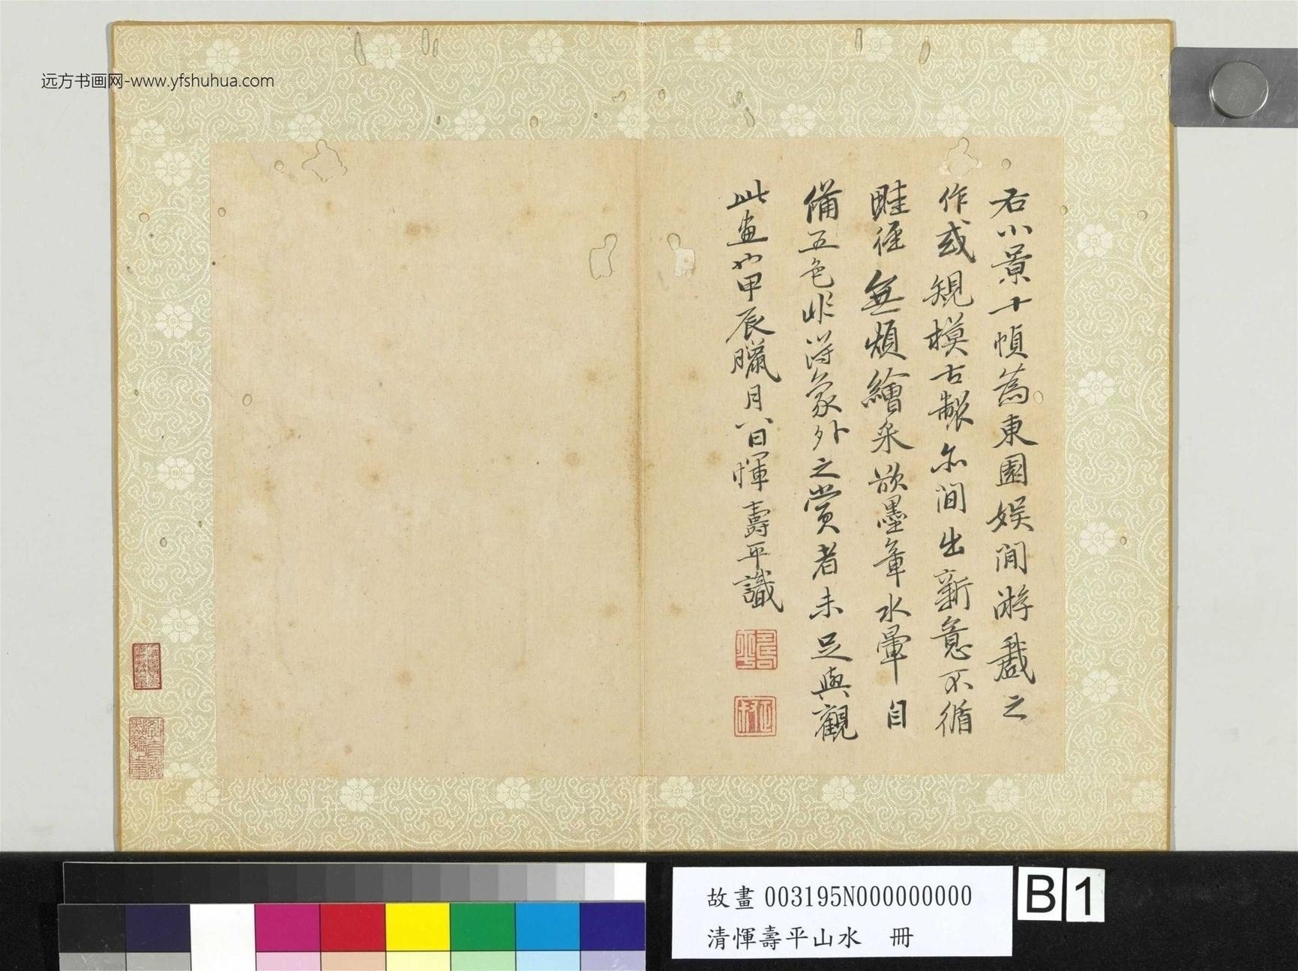 远方书画网-www.yfshuhua.com
右小景十幀為東園娛閒游戲之
作或規模古製亦間出新意不循
畦徑無煩繪采欲墨華水暈自
備五色非得象外之賞者未足與觀
此畫也甲辰臘月八日惲壽平識
故畫 003195N000000000
清惲壽平山水 冊
B1